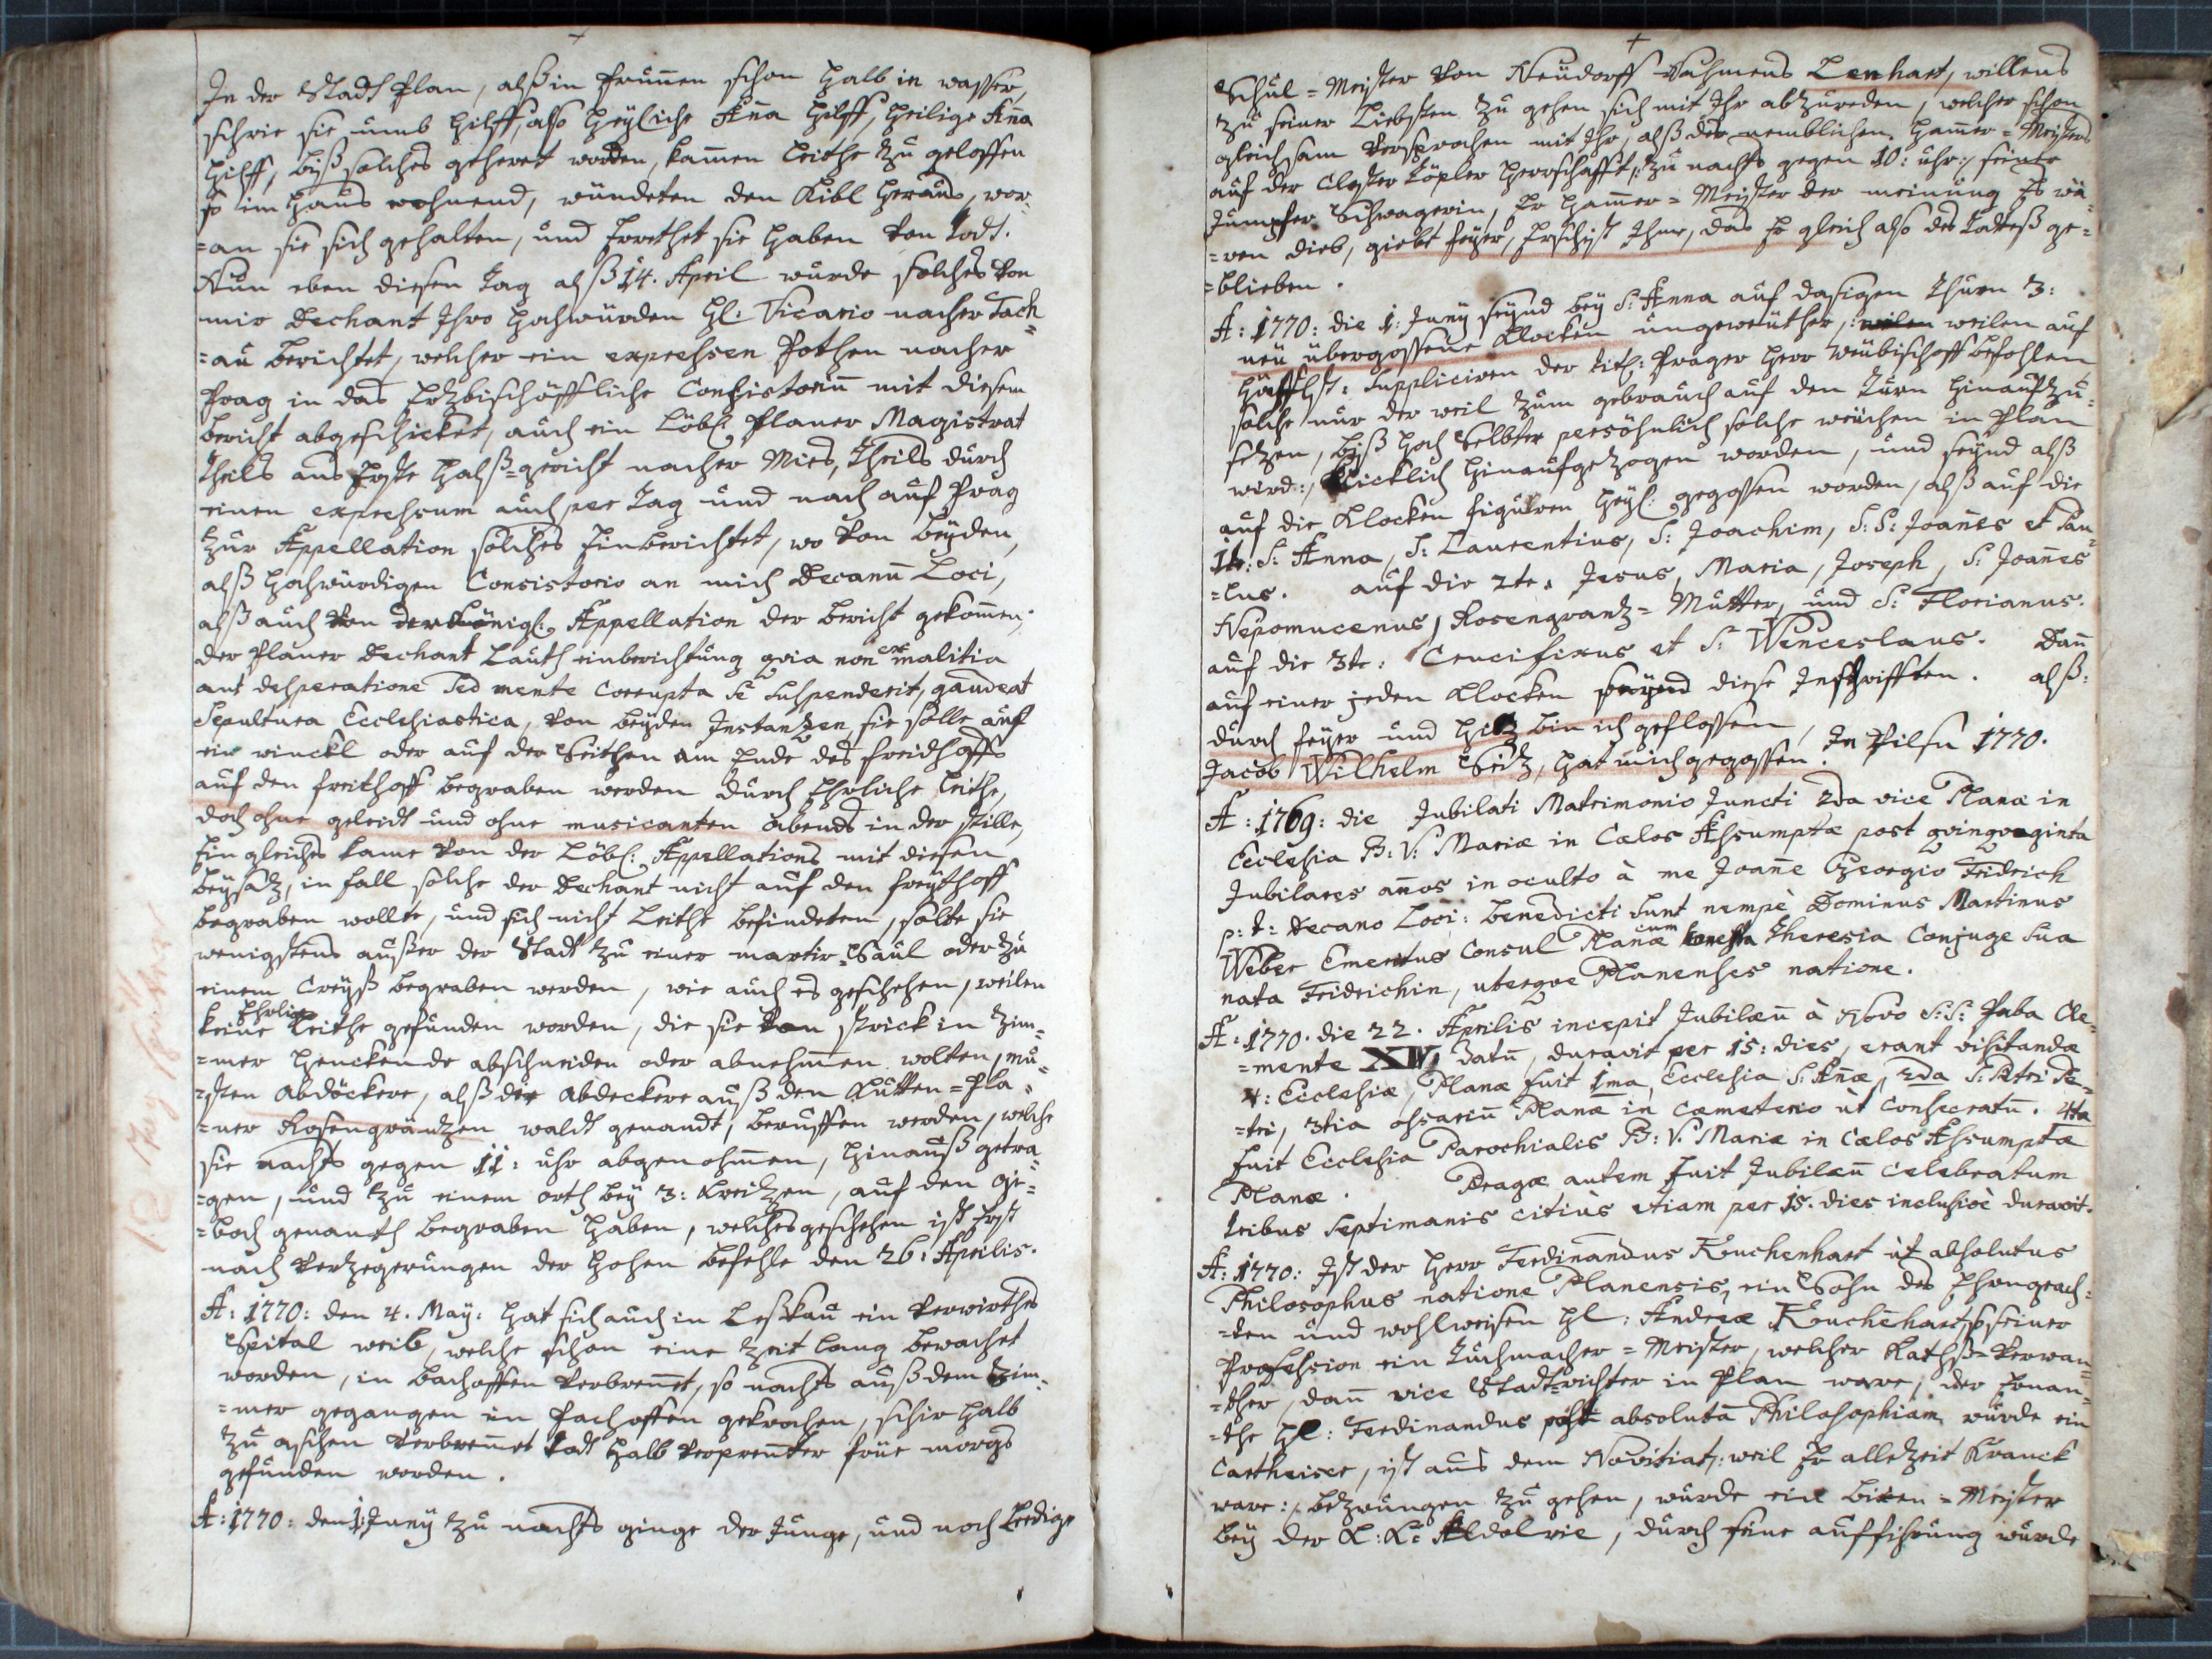 In der Stadt Plan, alß in Brunnen schon halb in wasser,
schrie sie umb hilff, also heyliche Anna hilff, heilige Anna
hilff, biß solches gehöret worden, kammen leithe zu geloffen
so im hauß wohnend, wündeten den Kibl heraus, wor=
=an sie sich gehalten, und Errethet sie haben von Todt.
Nun eben diesen Tag alß 14. April wurde solches von
mir Dechant Ihro hochwürden Hl: Vicario nacher Tach=
=au berichtet, welcher ein exprehsen Pothen nacher
Prag in das Ertzbischöffliche Consistoriu mit diesem
bericht abgeschicket, auch ein Löbl: Planer Magistrat
theils ans Erste halß=gericht nacher Mies, theils durch
einen exprehsum auch per Tag und nach auf Prag
zur Appellation solches Einberichtet, wo von beyden,
alß hochwürdigen Consistorio an mich Decanu Loci,
alß auch von der Königl: Appellation der bericht gekomen,
der Planer Dechant lauth einberichtung qvia non ex malitia
aut desperatione sed mente corrupta se suspenderit, gaudeat
Sepultura Ecclesiastica, von beyden Instantzen, sie solle auf
ein winckl oder auf der Seithen am Ende des freidhoffs
auf den freithoff begraben werden durch Ehrliche leithe,
doch ohne geleidt und ohne musicanten abends in der stille,
Ein gleiches kame von der Löbl: Appellations mit diesen
beysatz, in fall solche der Dechant nicht auf den freythoff
begraben wollte, und sich nicht leithe befindeten, solte sie
wenigstens außer der Stadt zu einer martir=Saul oder zu
einem Creyß begraben werden, wie auch es geschehen, weilen
Ehrliche
keine leithe gefunden worden, die sie von strick in Zim=
=mer henckende abschneiden oder abnehmen wolten, mu=
=sten Abdöcker, alß die abdecker auß den Kutten=Pla=
=ner Rosengräntzen waldt genandt, beruffen werden, welche
sie nachts gegen 11: uhr abgenohmen, hinauß getra=
=gen, und zu einem orth bey 3: Kreitzen, auf den Ge=
=boch genanth begraben haben, welches geschehen ist Erst
nach verzegerungen der hohen befehle den 26: Aprilis.
A: 1770: den 4. May: hat sich auch in Leskau ein verwirthes
Spital weib, welche schon eine Zeit lang bewachet
worden, in bachoffen verbrennet, so nachts auß dem Zim=
=mer gegangen in Pachoffen gekrochen, schir halb
zu aschen verbrennet todt halb verprenter früe morgs
gefunden worden.
A: 1770: den 1: Juny zu nachts ginge der Junge, und noch Ledige
Schul=Meister von Neudorff Nahmens Lenhart, willens
zu seiner Liebsten zu gehen sich mit Ihr abzureden, welcher schon
gleichsam versprochen mit Ihr, alß des nemblichen hammer=Meisters
auf der Closter Töpler herrschafft /: zu nachts gegen 10: uhr :/ seine
Jumpfer Schwagerin, Er hammer=Meister der meinung Es wä=
=ren dieb, giebt feyer, Erschist Ihme, das Er gleich also des Todteß ge=
=blieben.
A: 1770: die 1: Juny seynd bey S: Anna auf dasigen Thurn 3:
neu übergossene Klocken ungeweüther, weilen auf
höfflst: Suppliciren der titl: Prager herr Weübischoff befohlen
solche nur der weil zum gebrauch auf den Turn hinauf zu
setzen, biß hoch Selbter persöhnlich solche weichen in Plan
wird :/ Klicklich hinaufgezogen worden, und seynd alß
auf die Klocken figuren heyl: gegossen worden, alß auf die
1te: S: Anna, S: Laurentius, S: Joachim, S: S: Joanes et Pau=
=lus. auf die 2te: Jesus, Maria, Joseph, S: Joanes
Nepomucenus, Rosengrantz=Mutter, und S: Florianus.
auf die 3te: Crucifixus et S: Wenceslaus. Dan
auf einer jeden Klocken seynd diese Inschrifften. alß:
durch feyer und hitz bin ich geflossen,
Jacob Wilhelm Seitz, hat mich gegossen. In Pilsn 1770.
A: 1769: die Jubilati Matrimonio Juncti 2da vice Planæ in
Ecclesia B: V: Mariæ in Cælos Assumptæ post qvinqvaginta
Jubilares anos in oculto à me Joane Georgio Fridrich
p: t: Decano Loci: benedicti sunt nempè Dominus Martinus
Weber Emeritus Consul Planæ cum Theresia Conjuge sua
nata Fridrichin, uterqve Planenses natione.
A: 1770. die 22. Aprilis incepit Jubilæu à Novo S: S: Paba Cle=
=mente XIV. datu, duravit per 15: dies, erant visitandæ
4: Ecclesiæ, Planæ fuit 1ma Ecclesia S: Anæ, 2da S: Petri Pe=
=tri, 3tia ossariu Planæ in Cæmeterio ut Consecratu. 4ta
fuit Ecclesia Parochialis B: V. Mariæ in Cælos Assumptæ
Planæ. Pragæ autem fuit Jubilæu celebratum
tribus Septimanis citiùs etiam per 15. dies inclusivè duravit.
A: 1770: Ist der Herr Ferdinandus Kruchenhart ut absolutus
Philosophus natione Planensis, ein Sohn des Ehrngeach=
=ten und wohlweisen Hl: Andreæ Kruchehart, so seiner
Profession ein Tuchmacher=Meister, welcher Rathß=verwan=
=ther, dan vice Stadtrichter in Plan ware, der Genan=
=the Hl: Ferdinandus post absolutã Philosophiam wurde ein
Cartheiser, ist aus dem Novitiat /: weil Er allezeit Kranck
ware :/ bezwungen zu gehen, wurde ein bixen=Meister
bey der K: K: , durch seine aufführung wurde